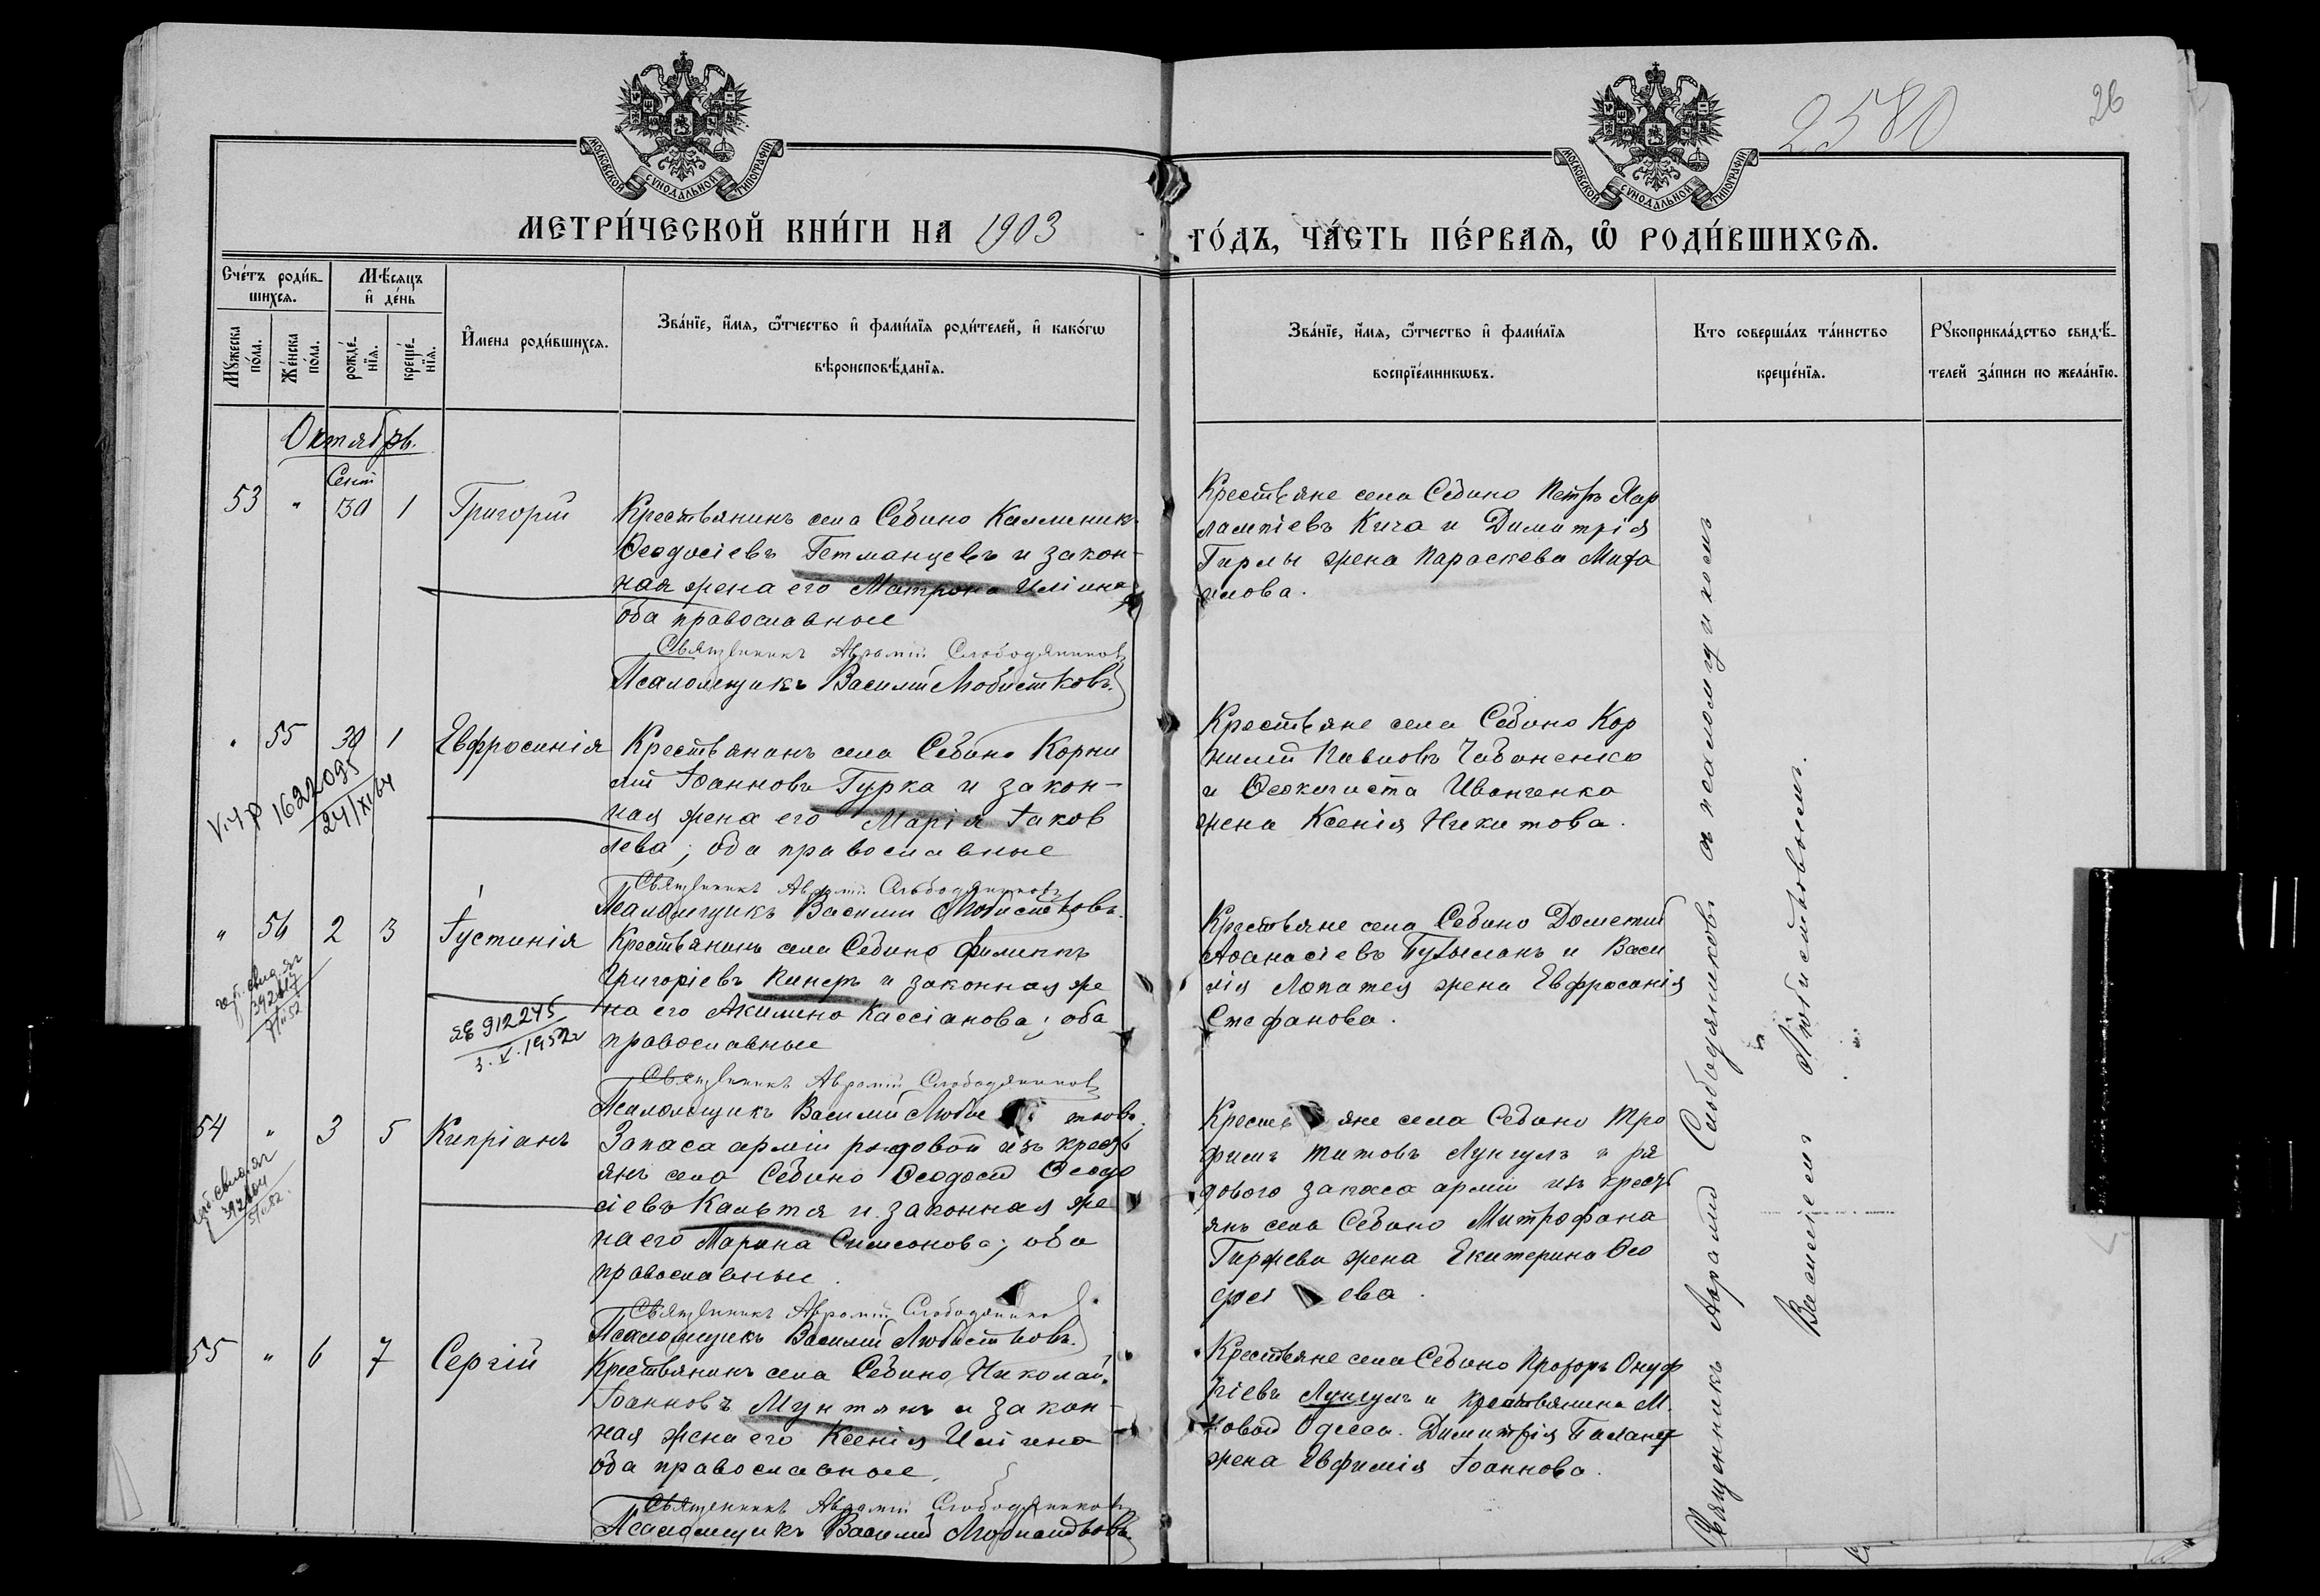 МОСКОВСКОЙ СѴНОДАЛЬНОЙ ТИПОГРАФІИ
МОСКОВСКОЙ СѴНОДАЛЬНОЙ ТИПОГРАФІИ
2580
26
МЕТРИ́ЧЕСКОЙ КНИ́ГИ НА 1903
ГО́ДЪ, ЧА́СТЬ ПЕ́РВАѦ, Ѿ РОДИ́ВШИХСѦ.
Сче́тъ роди́в-
шихсѧ.
Мѣ́сѧцъ
и҆ де́нь
Мꙋ́жеска
по́ла.
Же́нска
по́ла.
рожде́-
нїѧ.
креще́-
нїѧ.
И҆́мена роди́вшихсѧ.
Зва́нїе, и҆́мѧ, ѻ҆́тчество и҆ фами́лїѧ роди́телей, и҆ како́гѡ
вѣроисповѣ́данїѧ.
Зва́нїе, и҆́мѧ, ѻ҆́тчество и҆ фами́лїѧ
воспрїе́мникѡвъ.
Кто соверша́лъ та́инство
креще́нїѧ.
Рꙋкоприкла́дство свидѣ́-
телей за́писи по жела́нїю.
Октябрь.
Сент
53 " 30 1 Григорій
Крестьянинъ села Себино Каллиник
Ѳеодосіевъ Гетманцевъ и закон-
ная жена его Матрона Иліина
оба православные
Священникъ Аврамій Слободяников
Псаломщикъ Василий Любистковъ.
Крестьяне села Себино Петръ Хар
лампіевъ Кича и Димитрія
Гирлы жена Параскева Миха
илова.
" 55 30 1 Евфросинія
Крестьянинъ села Себино Корни
лій Іоанновъ Гурка и закон-
ная жена его Марія Іаков
лева; оба православные
Священникъ Аврамій Слободяниковъ
Псаломщикъ Василий Любистковъ.
Крестьяне села Себино Кор
нилий Павловъ Чабаненко
и Ѳеоктиста Иванченко
жена Ксенія Никитова.
1622095
24/XI 64
" 56 2 3 Іустинія
Крестьянинъ села Себино Филиппъ
Григоріевъ Кинеръ и законная же
на его Акилина Кассіанова; оба
православные
Священникъ Аврамій Слободяников
Псаломщикъ Василий Любистковъ.
Крестьяне села Себино Дометий
Аѳанасіевъ и Васи
лія Лопатея жена Евфросинія
Стефанова.
912245
3.V.1952г
54 " 3 5 Кипріанъ
Запаса арміи рядовой изъ кресть
янъ села Себино Ѳеодосій Ѳеодо
сіевъ Кальтя и законная же
на его Марина Симеонова; оба
православные.
Священникъ Аврамій Слободянико
Псаломщикъ Василий Любистковъ.
Крестьяне села Себино Тро
фимъ Титовъ Лунгулъ и ря
дового запаса арміи изъ кресть
янъ села Себино Митрофана
Гиржева жена Екатерина Ѳео
ева.
55 " 6 7 Сергій
Крестьянинъ села Себино Николай
Іоанновъ Мунтянъ и закон-
ная жена его Ксенія Иліина
оба православные.
Священникъ Аврамій Слободяников
Псаломщикъ Василий Любистковъ
Крестьяне села Себино Прохоръ Онуф
ріевъ Лунгулъ и крестьянина М.
Новой Одессы. Димитрія
жена Евфимія Іоаннова.
Священникъ Аврамій Слободяниковъ съ псаломщикомъ
Василіемъ Любистковымъ.